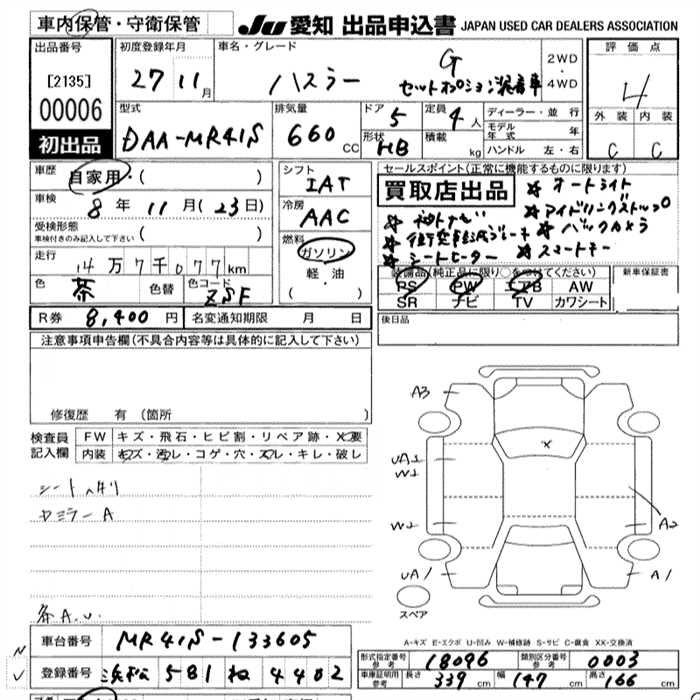 車内保管・守衛保管
JU 愛知 出品申込書 JAPAN USED CAR DEALERS ASSOCIATION
出品番号
[2135]
00006
初出品
初度登録年月
27 11月
車名・グレード
ハスラー G
セットオプション装着車
2WD
・
4WD
評価点
4
外装 内装
C C
型式
DAA-MR41S
排気量
660 CC
ドア 5
形状 HB
定員 4人
積載 kg
ディーラー・並行
モデル年式 年
ハンドル 左・右
車歴 自家用・( )
車検 8年 11月(23日)
受検形態
車検付きのみ記入して下さい ( )
走行 14万7千077km
色 茶 色替 色コード ZSF
シフト
IAT
冷房
AAC
燃料
ガソリン
・
軽油
( )
セールスポイント(正常に機能するものに限ります)
買取店出品
☆オートライト
☆アイドリングストップ
☆バックカメラ
☆シートヒーター
☆スマートキー
装備品(純正品に限り○をつけてください)
PS PW エアB AW
SR ナビ TV カワシート
新車保証書
R券 8,400円 名変通知期限 月 日
後日品
注意事項申告欄(不具合内容等は具体的に記入して下さい)
修復歴 有 (箇所 )
検査員記入欄
FW キズ・飛石・ヒビ割・リペア跡・X要
内装 キズ・汚レ・コゲ・穴・スレ・キレ・破レ
シートヘタリ
A3
X
UA1
W1
W2
A2
UA1
A1
スペア
A-キズ E-エクボ U-凹み W-補修跡 S-サビ C-腐食 XX-交換済
車台番号 MR41S-133605
登録番号 浜松 581 ね 4402
型式指定番号 参考 18096 類別区分番号 参考 0003
車庫証明用 参考 長さ 339cm 幅 147cm 高さ 166cm